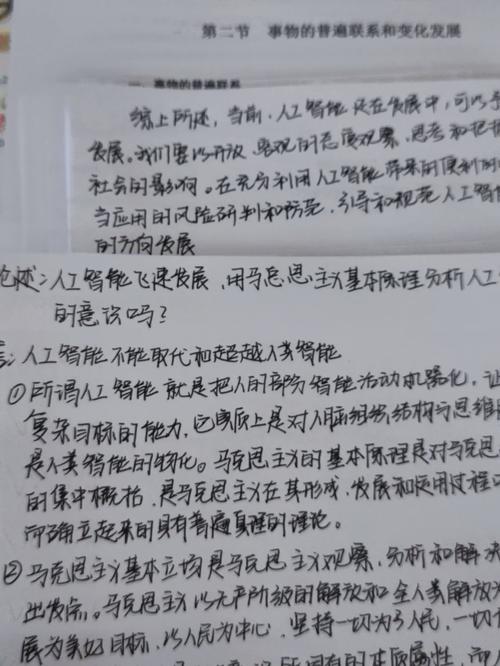 第二节 事物的普遍联系和变化发展
一、事物的普遍联系
综上所述,当前,人工智能还在发展中,可以予
发展。我们要以开放、客观的态度观察、思考和把握
社会的影响。在充分利用人工智能带来的便利的
当应用的风险研判和防范,引导和规范人工智能
的方向发展
论述:人工智能飞速发展,用马克思主义基本原理分析人工
的意识吗?
答:人工智能不能取代和超越人类智能
①所谓人工智能就是把人的部分智能活动机器化,让
复杂目标的能力,它实质上是对人脑组织结构与思维
是人类智能的物化。马克思主义的基本原理是对马克思
的集中概括,是马克思主义在其形成、发展和运用过程
而确立起来的具有普遍真理的理论。
②马克思主义基本立场是马克思主义观察、分析和解决
出发点。马克思主义以无产阶级的解放和全人类解放
展为美好目标,以人民为中心,坚持一切为了人民,一切
所固有的本质属性,而